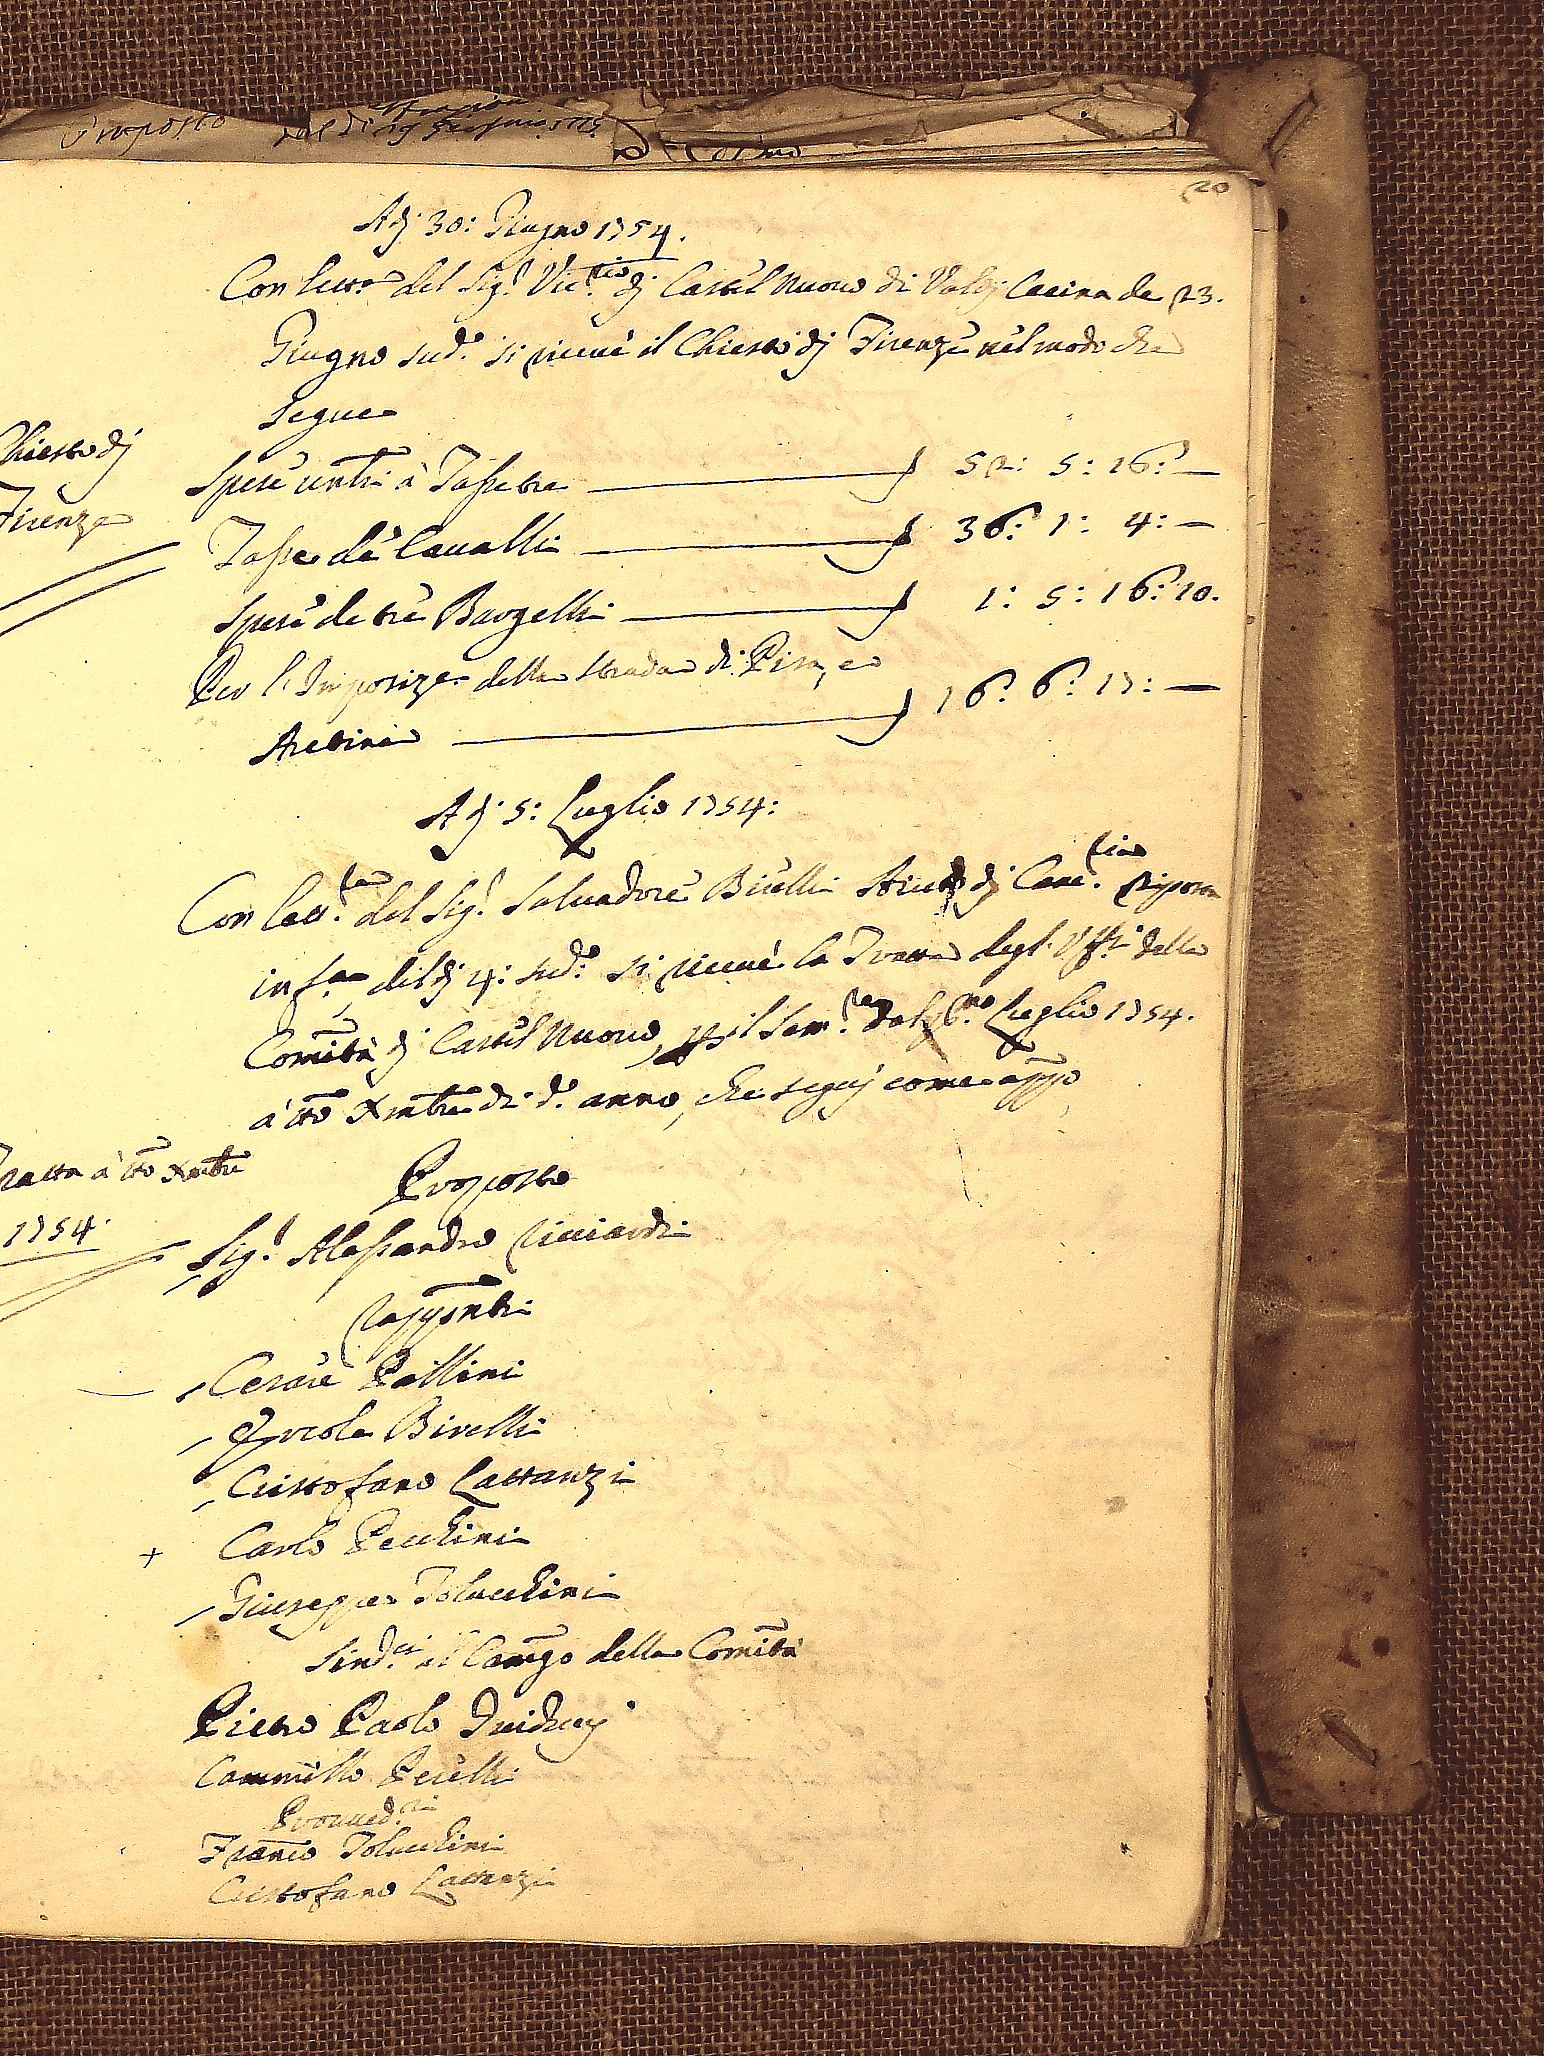 Proposto
20
Adj 30: Giugno 1754.
Con lett.ª del Sig.r Vic.rio dj Castel Nuovo di Valdj Cecina de 23.
Giugno sud.º si riceve il Chiesto dj Firenze nel modo che
segue
Chiesto dj
Firenze
Spese uniti à Tasse tre 52: 5: 16: —
Tasse de Cavalli 36: 1: 4: —
Spese de tre Bargelli 1: 5: 16: 10.
Per l'Imposiz.e della strada di Pisa, e
16: 6: 17: —
Aretina
Adj 5: Luglio 1754:
Con lett.ra del Sig.r Salvadore Birelli dj Canc.
del dj 4: sud.º si riceve la Tratta degl'Uffi della
Comità dj Castel Nuovo, p il Sem.re Luglio 1754.
à tto Xmbre di d.º anno, che seguj come appo
Tratta à tto Xmbre
1754.
Proposto
Sig.r Alessandro Ricciardi
Rappntti
Cesare Pallini
Ercole Birelli
Cristofano Lattanzi
Carlo Pecchini
Giuseppe Tolucchini
Sind.ci il Camgo della Comità
Pietro Paolo Guiducj
Cammillo Perelli
Provved.ri
Franco Tolucchini
Cristofano Lattanzi